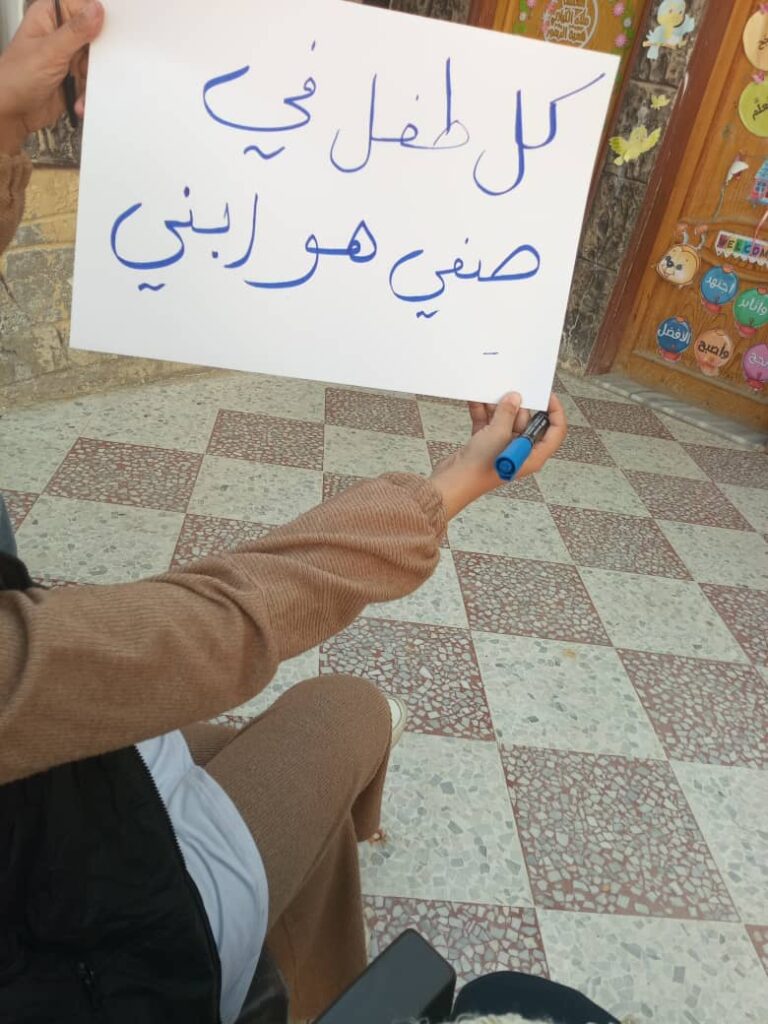 كل طفل في
صفي هو ابني
WELCOM
اجتهد
وثابر
الأفضل
وأصبح